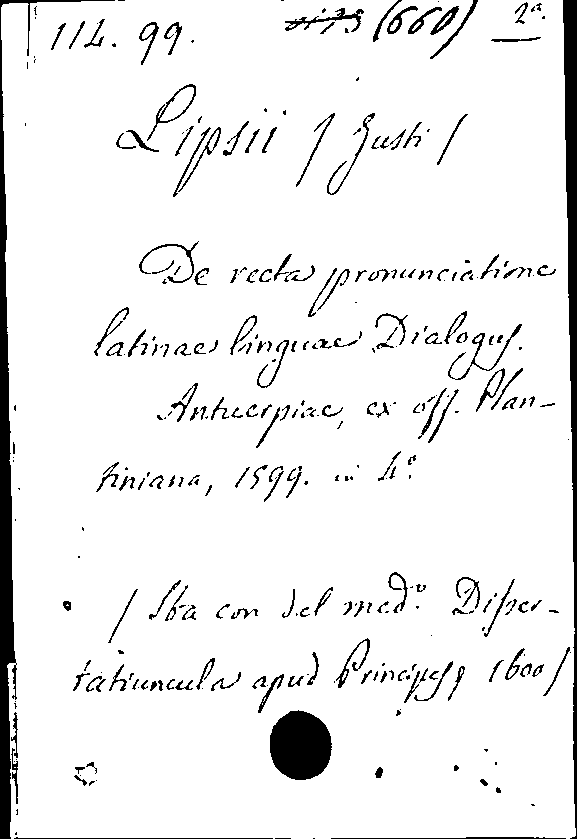 114. 99. (660) 2ª.
Lipsii / Justi /
De recta pronunciatione
latinae linguae Dialogus.
Antuerpiae, ex off. Plan-
tiniana, 1599. in 4º.
/ Sta con del medº. Disser-
tatiuncula apud Principes, 1600 /